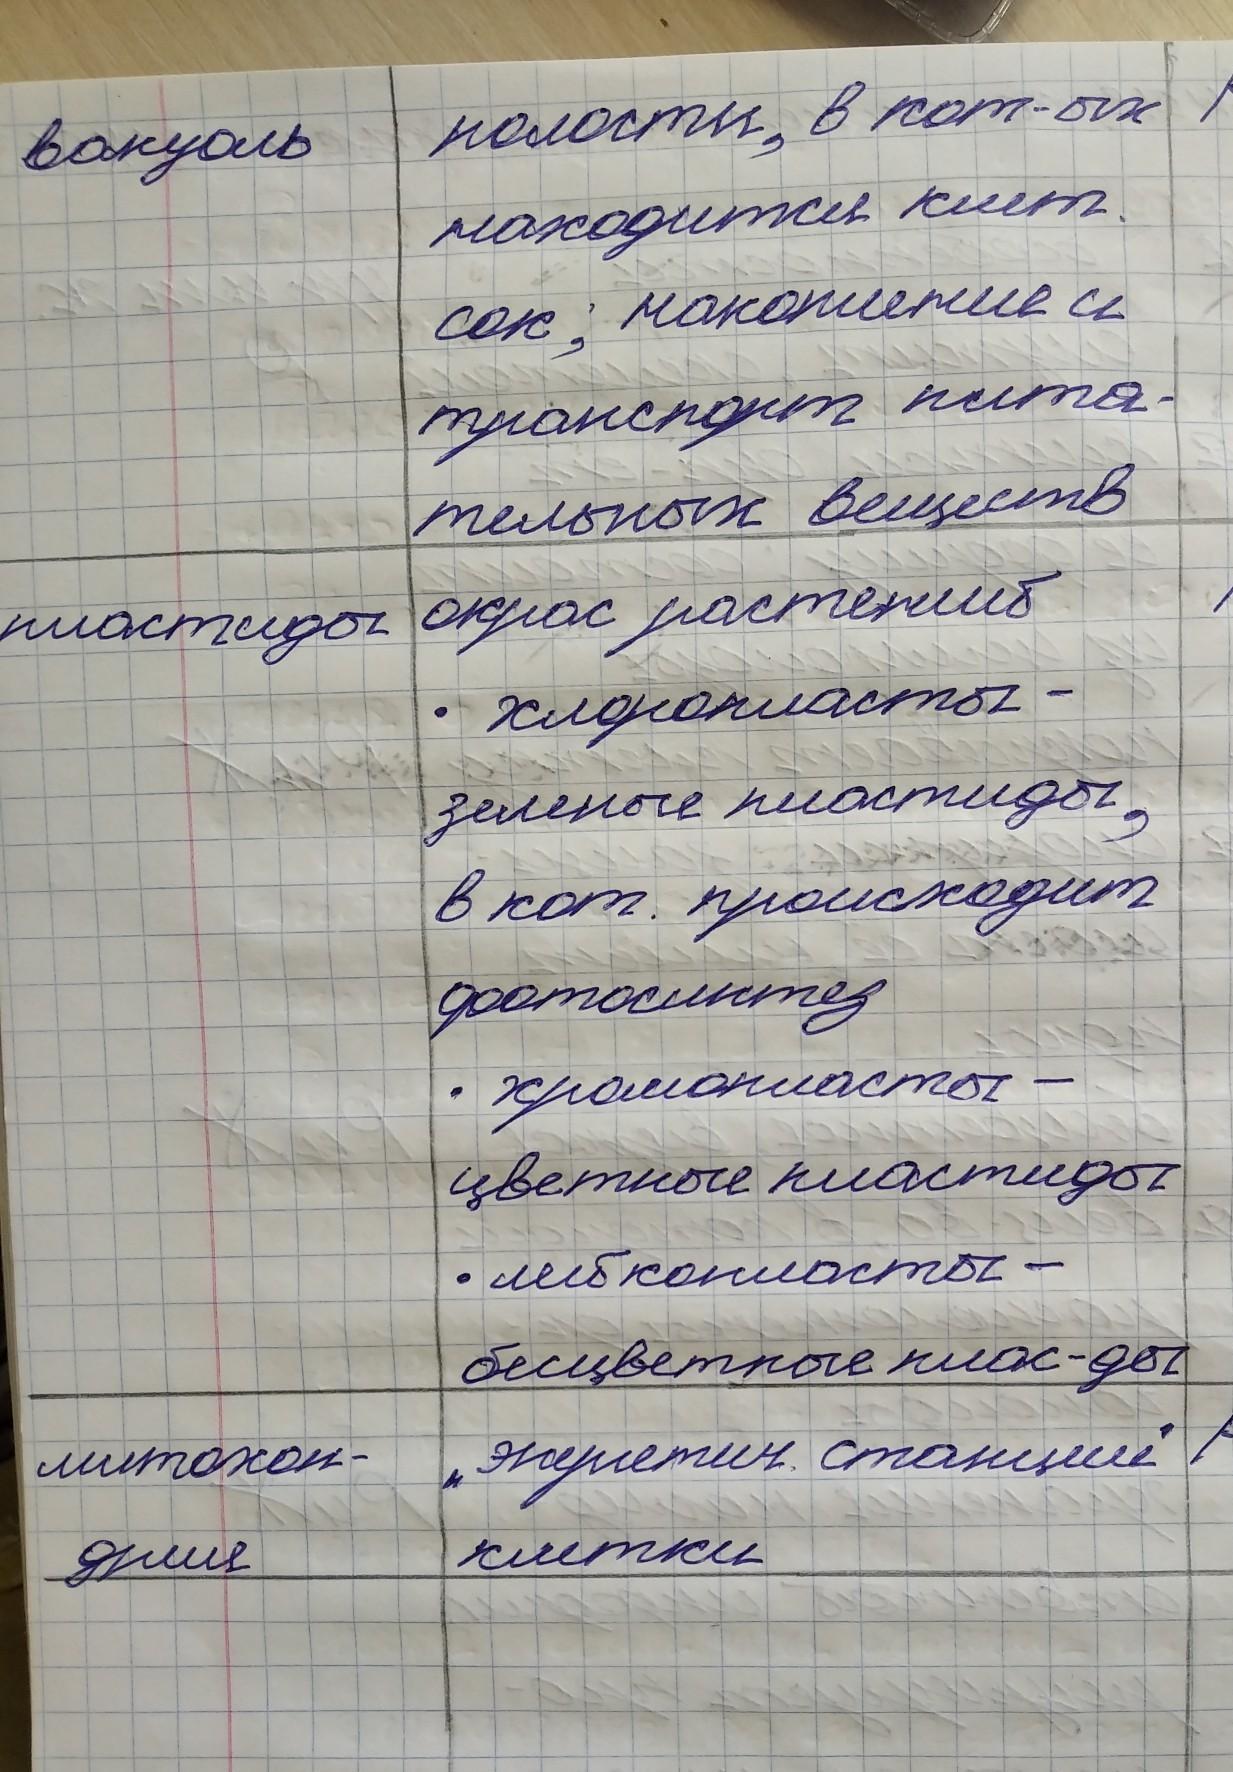 вакуоль
полости, в кот-ых
находится клет.
сок; накопление и
транспорт пита-
тельных веществ
пластиды
окрас растений
• хлоропласты -
зеленые пластиды,
в кот. происходит
фотосинтез
• хромопласты -
цветные пластиды
• лейкопласты -
бесцветные плас-ды
митохон-
дрия
„энергетич. станции"
клетки